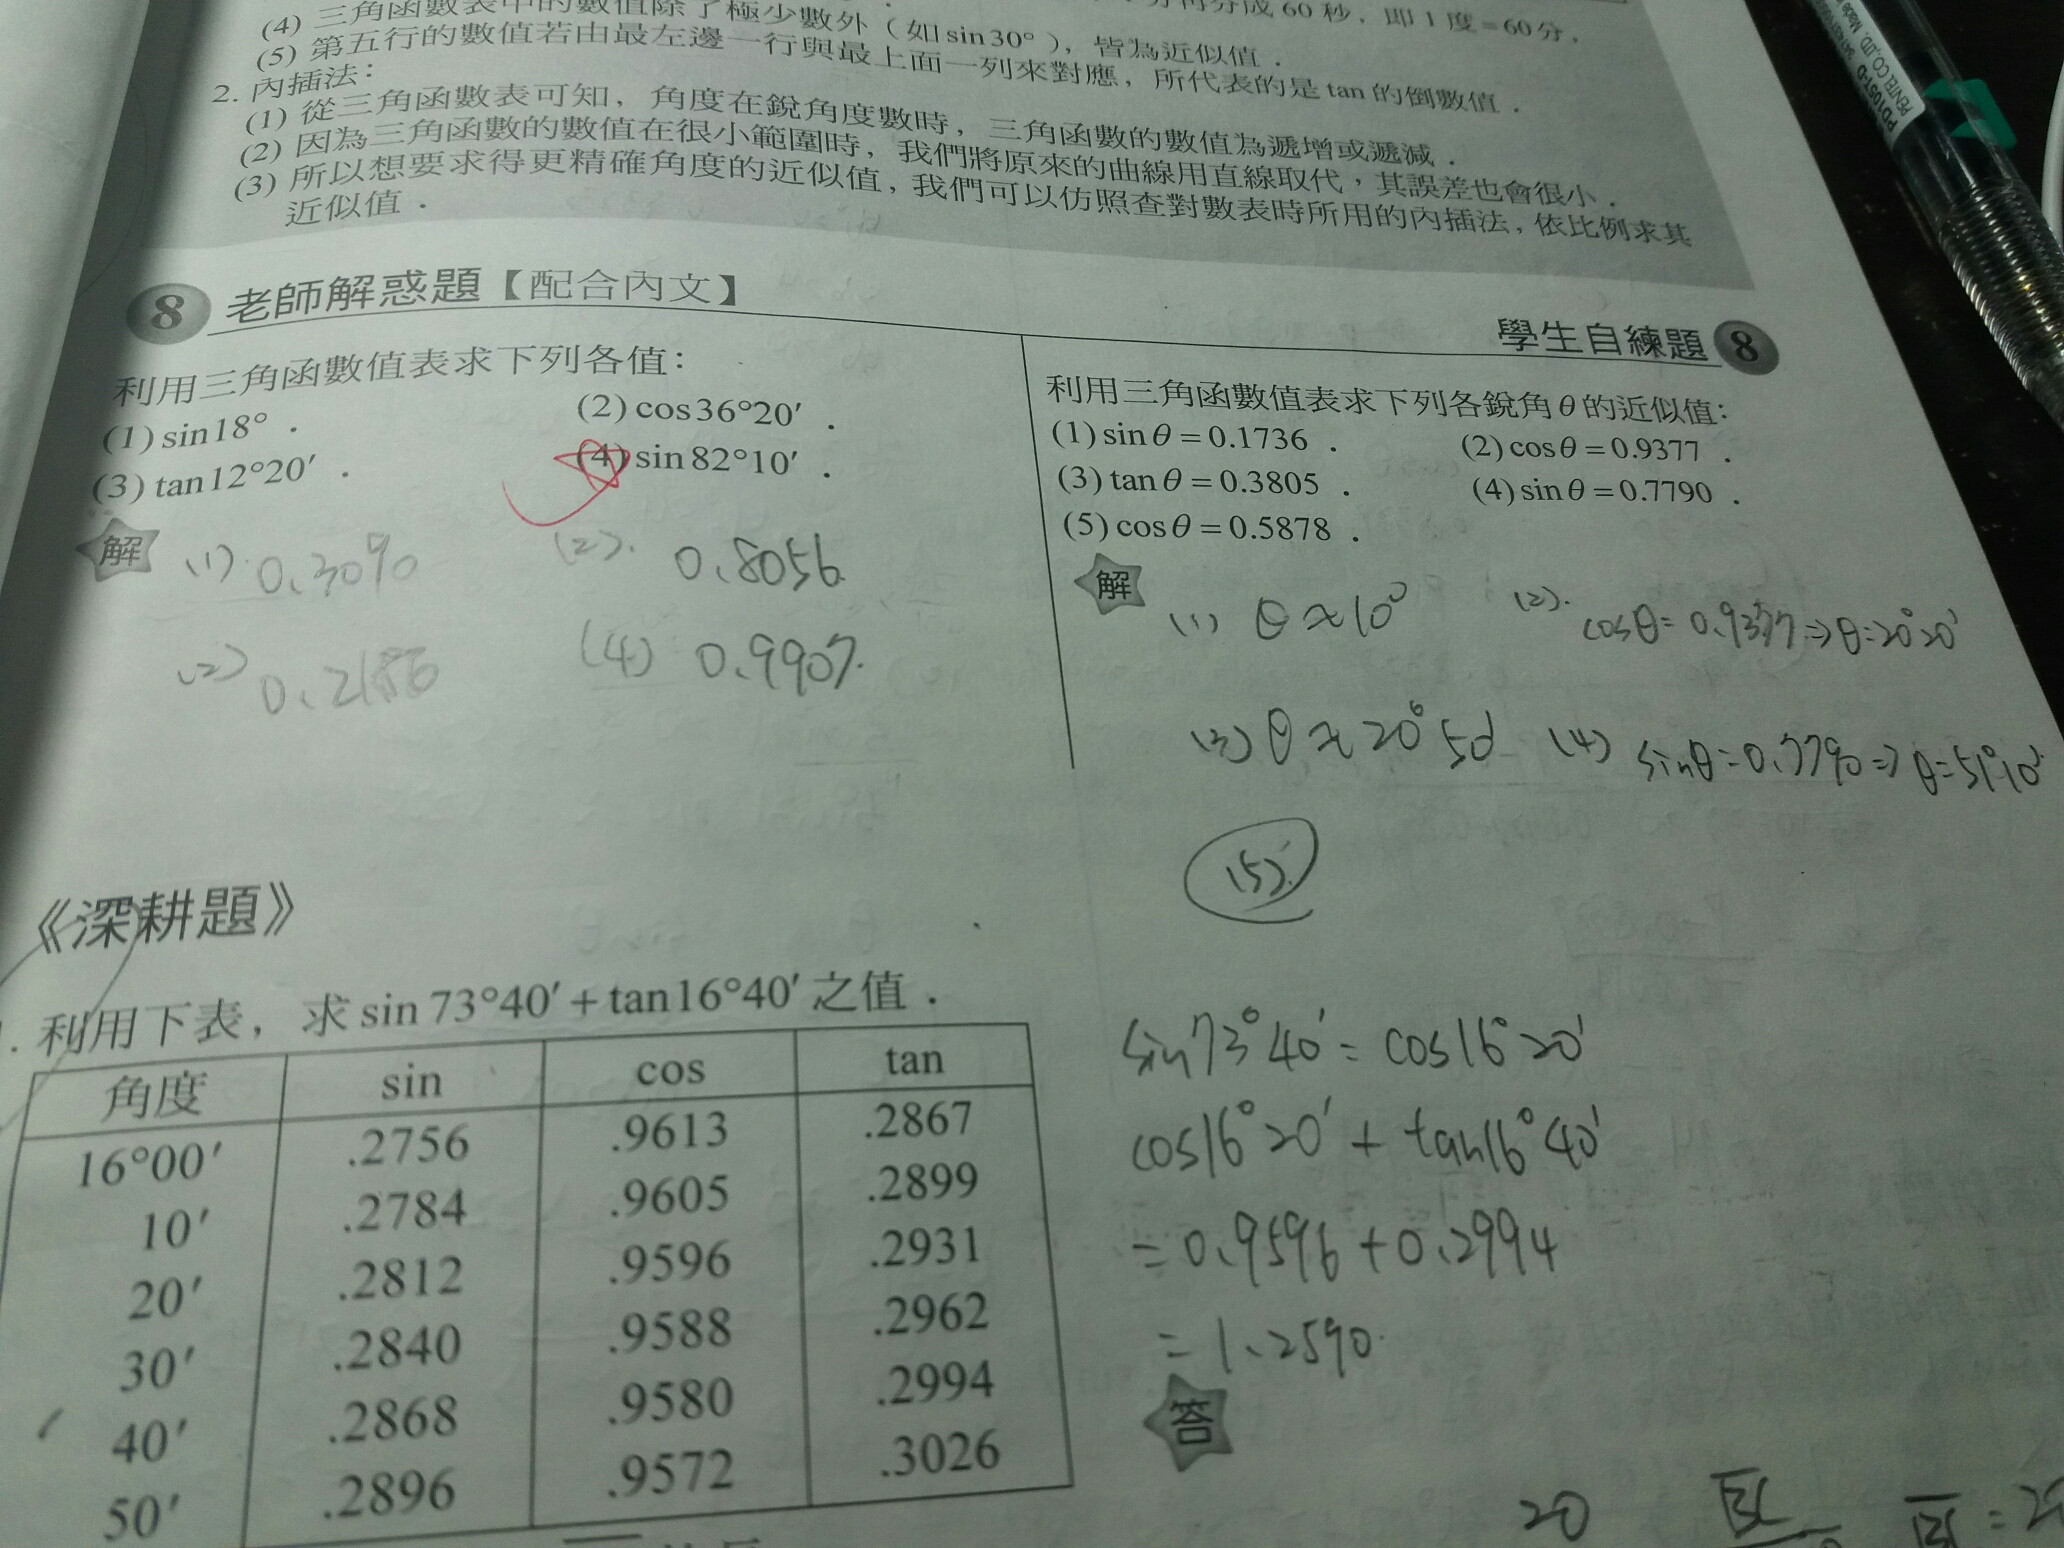 (4) 三角函數表中的數值除了極少數外(如sin30°),皆為近似值.
分再分成60秒,即1度=60分.
(5) 第五行的數值若由最左邊一行與最上面一列來對應,所代表的是tan的倒數值.
2. 內插法:
(1) 從三角函數表可知,角度在銳角度數時,三角函數的數值為遞增或遞減.
(2) 因為三角函數的數值在很小範圍時,我們將原來的曲線用直線取代,其誤差也會很小.
(3) 所以想要求得更精確角度的近似值,我們可以仿照查對數表時所用的內插法,依比例求其
近似值.
8 老師解惑題【配合內文】
利用三角函數值表求下列各值:
(1) sin18°. (2) cos36°20′.
(3) tan12°20′. (4) sin82°10′.
解 (1) 0.3090 (2). 0.8056
(2) 0.2186 (4) 0.9907.
學生自練題 8
利用三角函數值表求下列各銳角θ的近似值:
(1) sinθ=0.1736. (2) cosθ=0.9377.
(3) tanθ=0.3805. (4) sinθ=0.7790.
(5) cosθ=0.5878.
解 (1) θ≈10° (2). cosθ=0.9377⇒θ=20°20′
(3) θ≈20°50′ (4) sinθ=0.7790⇒θ=51°10′
(5).
《深耕題》
. 利用下表,求 sin73°40′+tan16°40′之值.
角度 sin cos tan
16°00′ .2756 .9613 .2867
10′ .2784 .9605 .2899
20′ .2812 .9596 .2931
30′ .2840 .9588 .2962
40′ .2868 .9580 .2994
50′ .2896 .9572 .3026
sin73°40′=cos16°20′
cos16°20′+tan16°40′
=0.9596+0.2994
=1.2590.
答
20
PD105T-D
PENTEL CO.,LTD.